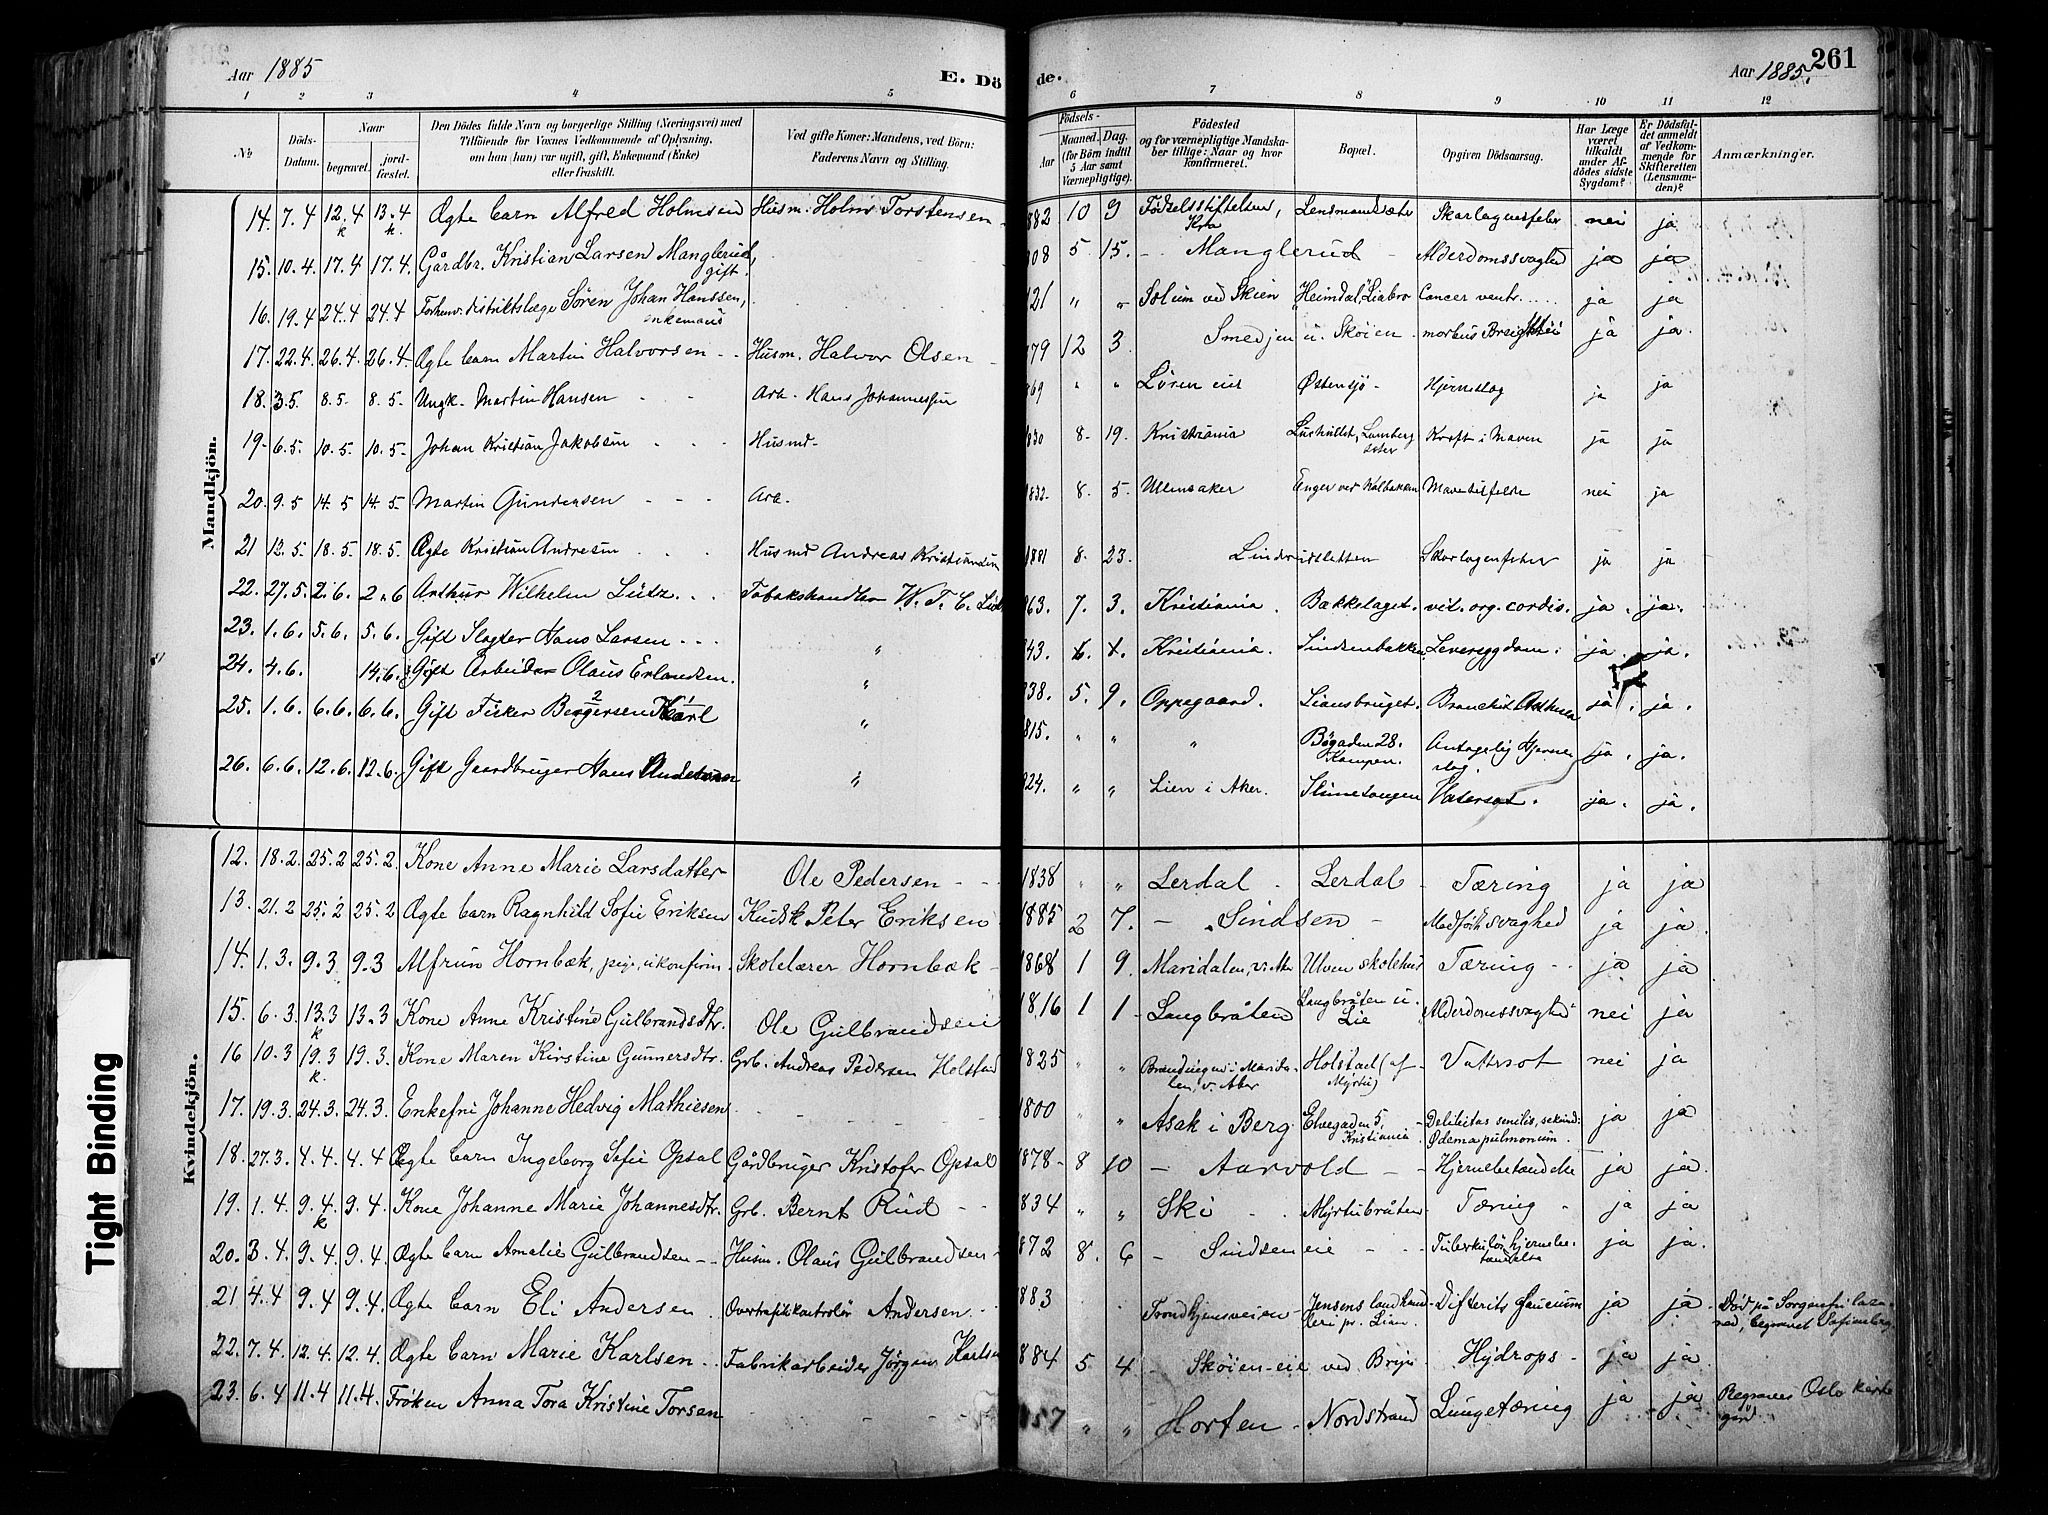 Aar 1885
E. Dö
de.
Aar 1885.
261
1 2 3 4 5 6 7 8 9 10 11 12
№
Döds-Datum.
Naar
begravet.
jord-fæstet.
Den Dödes fulde Navn og borgerlige Stilling (Næringsvei) med
Tilföiende for Voxnes Vedkommende af Oplysning,
om han (hun) var ugift, gift, Enkemand (Enke)
eller fraskilt.
Ved gifte Koner: Mandens, ved Börn:
Faderens Navn og Stilling.
Födsels-
Aar
Maaned. Dag.
(for Börn indtil
5 Aar samt
Værnepligtige).
Födested
og for værnepligtige Mandska-
ber tillige: Naar og hvor
konfirmeret.
Bopæl.
Opgiven Dödsaarsag.
Har Læge
været
tilkaldt
under Af-
dödes sidste
Sygdom?
Er Dödsfal-
det anmeldt
af Vedkom-
mende for
Skifteretten
(Lensman-
den)?
Anmærkninger.
Mandkjön.
14. 7.4 12.4 k 13.4 k. Ægte barn Alfred Holmsen Husm. Holm Torstensen 882 10 9 Födselsstiftelsen, Kra Lensmandsæter Skarlagensfeber nei ja
15. 10.4. 17.4 17.4. Gårdbr. Kristian Larsen Manglerud, gift. 808 5 15. Manglerud Alderdomssvaghed ja ja
16. 19.4 24.4 24.4 Forhenv. distriktslæge Sören Johan Hanssen, enkemand 121 " " Solum ved Skien "Heimdal", Liabro Cancer ventr. ja ja
17. 22.4. 26.4. 26.4. Ægte barn Martin Halvorsen Husm. Halvor Olsen 879 12 3. Smedjen u. Skøien morbus Brightii ja ja.
18. 3.5. 8.5. 8.5. Ungk. Martin Hansen Arb. Hans Johannessen 869 " " Løren eie Østensjø Hjerneslag ja ja
19. 6.5. 10.5. 10.5. Johan Kristian Jakobsen Husmd. 830 8. 19. Kristiania Lushullet, Lambergseter Kræft i Maven ja ja
20. 9.5 14.5 14.5. Martin Gundersen Arb. 1832. 8. 5. Ullensaker Enger ved Kalbakken Mavetilfælde nei ja
21 13.5. 18.5. 18.5. Ægte Kristian Andresen Husmd Andreas Kristiansen 1881 8. 23. Linderudsletten Skarlagenfeber ja ja
22. 27.5. 2.6. 2.6 Arthur Wilhelm Lütz. Tabakshandler W. T. C. Lütz 863. 7. 3. Kristiania. Bækkelaget. vit. org. cordis. ja. ja.
23. 1.6. 5.6. 5.6. Gift Slagter Hans Larsen " 843. Kristiania. Sindsenbakken Leversygdom. ja. ja.
24. 4.6. 14.6. Gift Arbeider Olaus Erlandsen. " 838. 5. 9. Oppegaard. Liansbruget. Bronchit Asthma ja. ja.
25. 1.6. 6.6. 6.6. Gift Fisker Bergersen Karl " 815. " " " Bøgaden 28. Kampen. Antagelig Hjerneslag. ja. ja.
26. 6.6. 12.6. 12.6. Gift Gaardbruger Hans Andersen " 824. " " Lien i Aker. Stimetangen Vatersot. ja. ja.
Kvindekjön.
12. 18.2. 25.2 25.2. Kone Anne Marie Larsdatter Ole Pedersen 1838 " " Lerdal Lerdal Tæring ja ja
13. 21.2 25.2 25.2 Ægte barn Ragnhild Sofie Eriksen Kudsk Peter Eriksen 1885 2 7. Sindsen Medfödt svaghed ja ja.
14. 1.3. 9.3 9.3 Alfrun Hornbæk, pige, ukonfirm. Skolelærer Hornbæk 1868 1 9. Maridalen, v. Aker Ulven skolehus Tæring ja ja
15. 6.3. 13.3 k 13.3 Kone Anne Kristine Gulbrandsdtr. Ole Gulbrandsen 1816 1 1 Langbråten Langbråten u. Lie Alderdomssvaghed nei ja
16 10.3 19.3 k. 19.3. Kone Maren Kirstine Gunnersdtr. Grb. Andreas Pedersen Holstad 1825 " " Brændingen i Maridalen, v. Aker Holstad (af Myrer) Vattersot nei ja
17. 19.3. 24.3. 24.3. Enkefru Johanne Hedvig Mathiesen 1800 " " Asak i Berg. Elvegaden 5, Kristiania Debilitas senilis, sekund. Ødema pulmonum. ja ja
18. 27.3. 4.4. 4.4 Ægte barn Ingeborg Sofie Opsal Gårdbruger Kristofer Opsal 1878 8 10 Aarvold Hjernebetændelse ja ja.
19. 1.4. 9.4. k 9.4. Kone Johanne Marie Johannesdtr. Grb. Bernt Rud 834 " " Ski Myrerbråten Tæring ja ja
20. 3.4. 9.4. 9.4. Ægte barn Amalie Gulbrandsen Husm. Olaus Gulbrandsen 872 8. 6 Sindsen eie Tuberkulös hjernebetændelse ja ja.
21 4.4 9.4 9.4. Ægte barn Eli Andersen Overtrafikkontrolör Andersen 883 Trondhjemsveien Jensens landhandleri pr. Lian. Difterits faucium ja ja. Död på Sorgenfri lazaret, begravet Sofienberg
22. 7.4. 12.4. 12.4. Ægte barn Marie Karlsen Fabrikarbeider Jørgen Karlsen 884 5 4 Skøien eie ved Bryn Hydrops ja ja
23. 6.4 11.4 11.4. Fröken Anna Tora Kristine Torsen 857 " " Horten Nordstrand Lungetæring ja ja Begraves Oslo kirkegård
Tight Binding